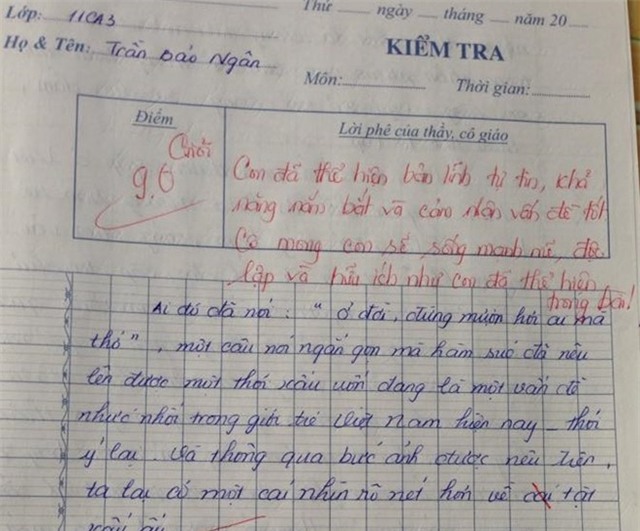 Thứ ngày tháng năm 20
Lớp: 11CA3
Họ & Tên: Trần Bảo Ngân
KIỂM TRA
Môn: Thời gian:
Điểm
Lời phê của thầy, cô giáo
9.0
Con đã thể hiện bản lĩnh tự tin, khả
năng nắm bắt và cảm nhận vấn đề tốt
Cô mong con sẽ sống mạnh mẽ, độc
lập và hữu ích như con đã thể hiện
trong bài!
Ai đó đã nói: "Ở đời, đừng mượn hơi ai mà
thở", một câu nói ngắn gọn mà hàm súc đã nêu
lên được một thói xấu vốn đang là một vấn đề
nhức nhối trong giới trẻ Việt Nam hiện nay - thói
ỷ lại. Và thông qua bức ảnh được nêu trên,
ta lại có một cái nhìn rõ nét hơn về cái tật
xấu ấy